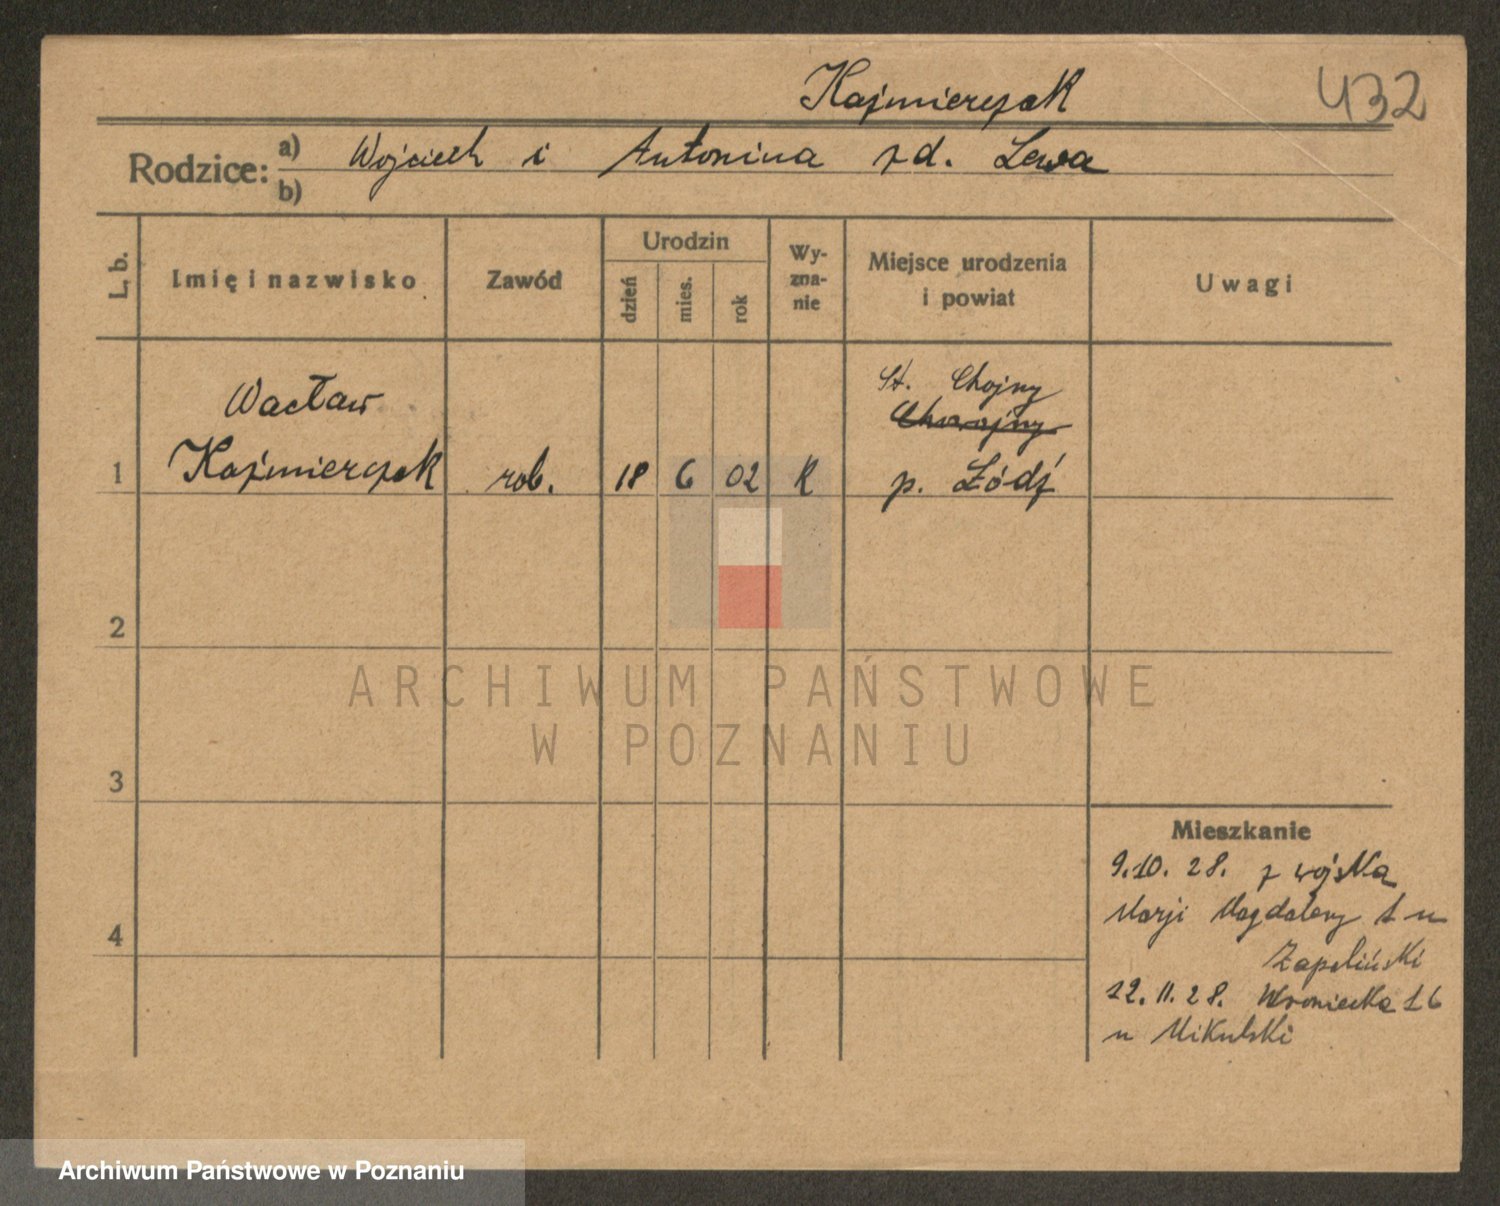 Kaźmierczak
432
Rodzice: a) Wojciech i Antonina zd. Lewa
b)
L. b.
Imię i nazwisko
Zawód
Urodzin
dzień
mies.
rok
Wy-
zna-
nie
Miejsce urodzenia
i powiat
Uwagi
Wacław
St. Chojny
Chorojny
1 Kaźmierczak rob. 18 6 02 K p. Łódź
2
3
4
ARCHIWUM PAŃSTWOWE
W POZNANIU
Mieszkanie
9.10.28. z wojska
Marji Magdaleny 1 u
Zapaliński
12.11.28. Wroniecka 16
u Mikulski
Archiwum Państwowe w Poznaniu